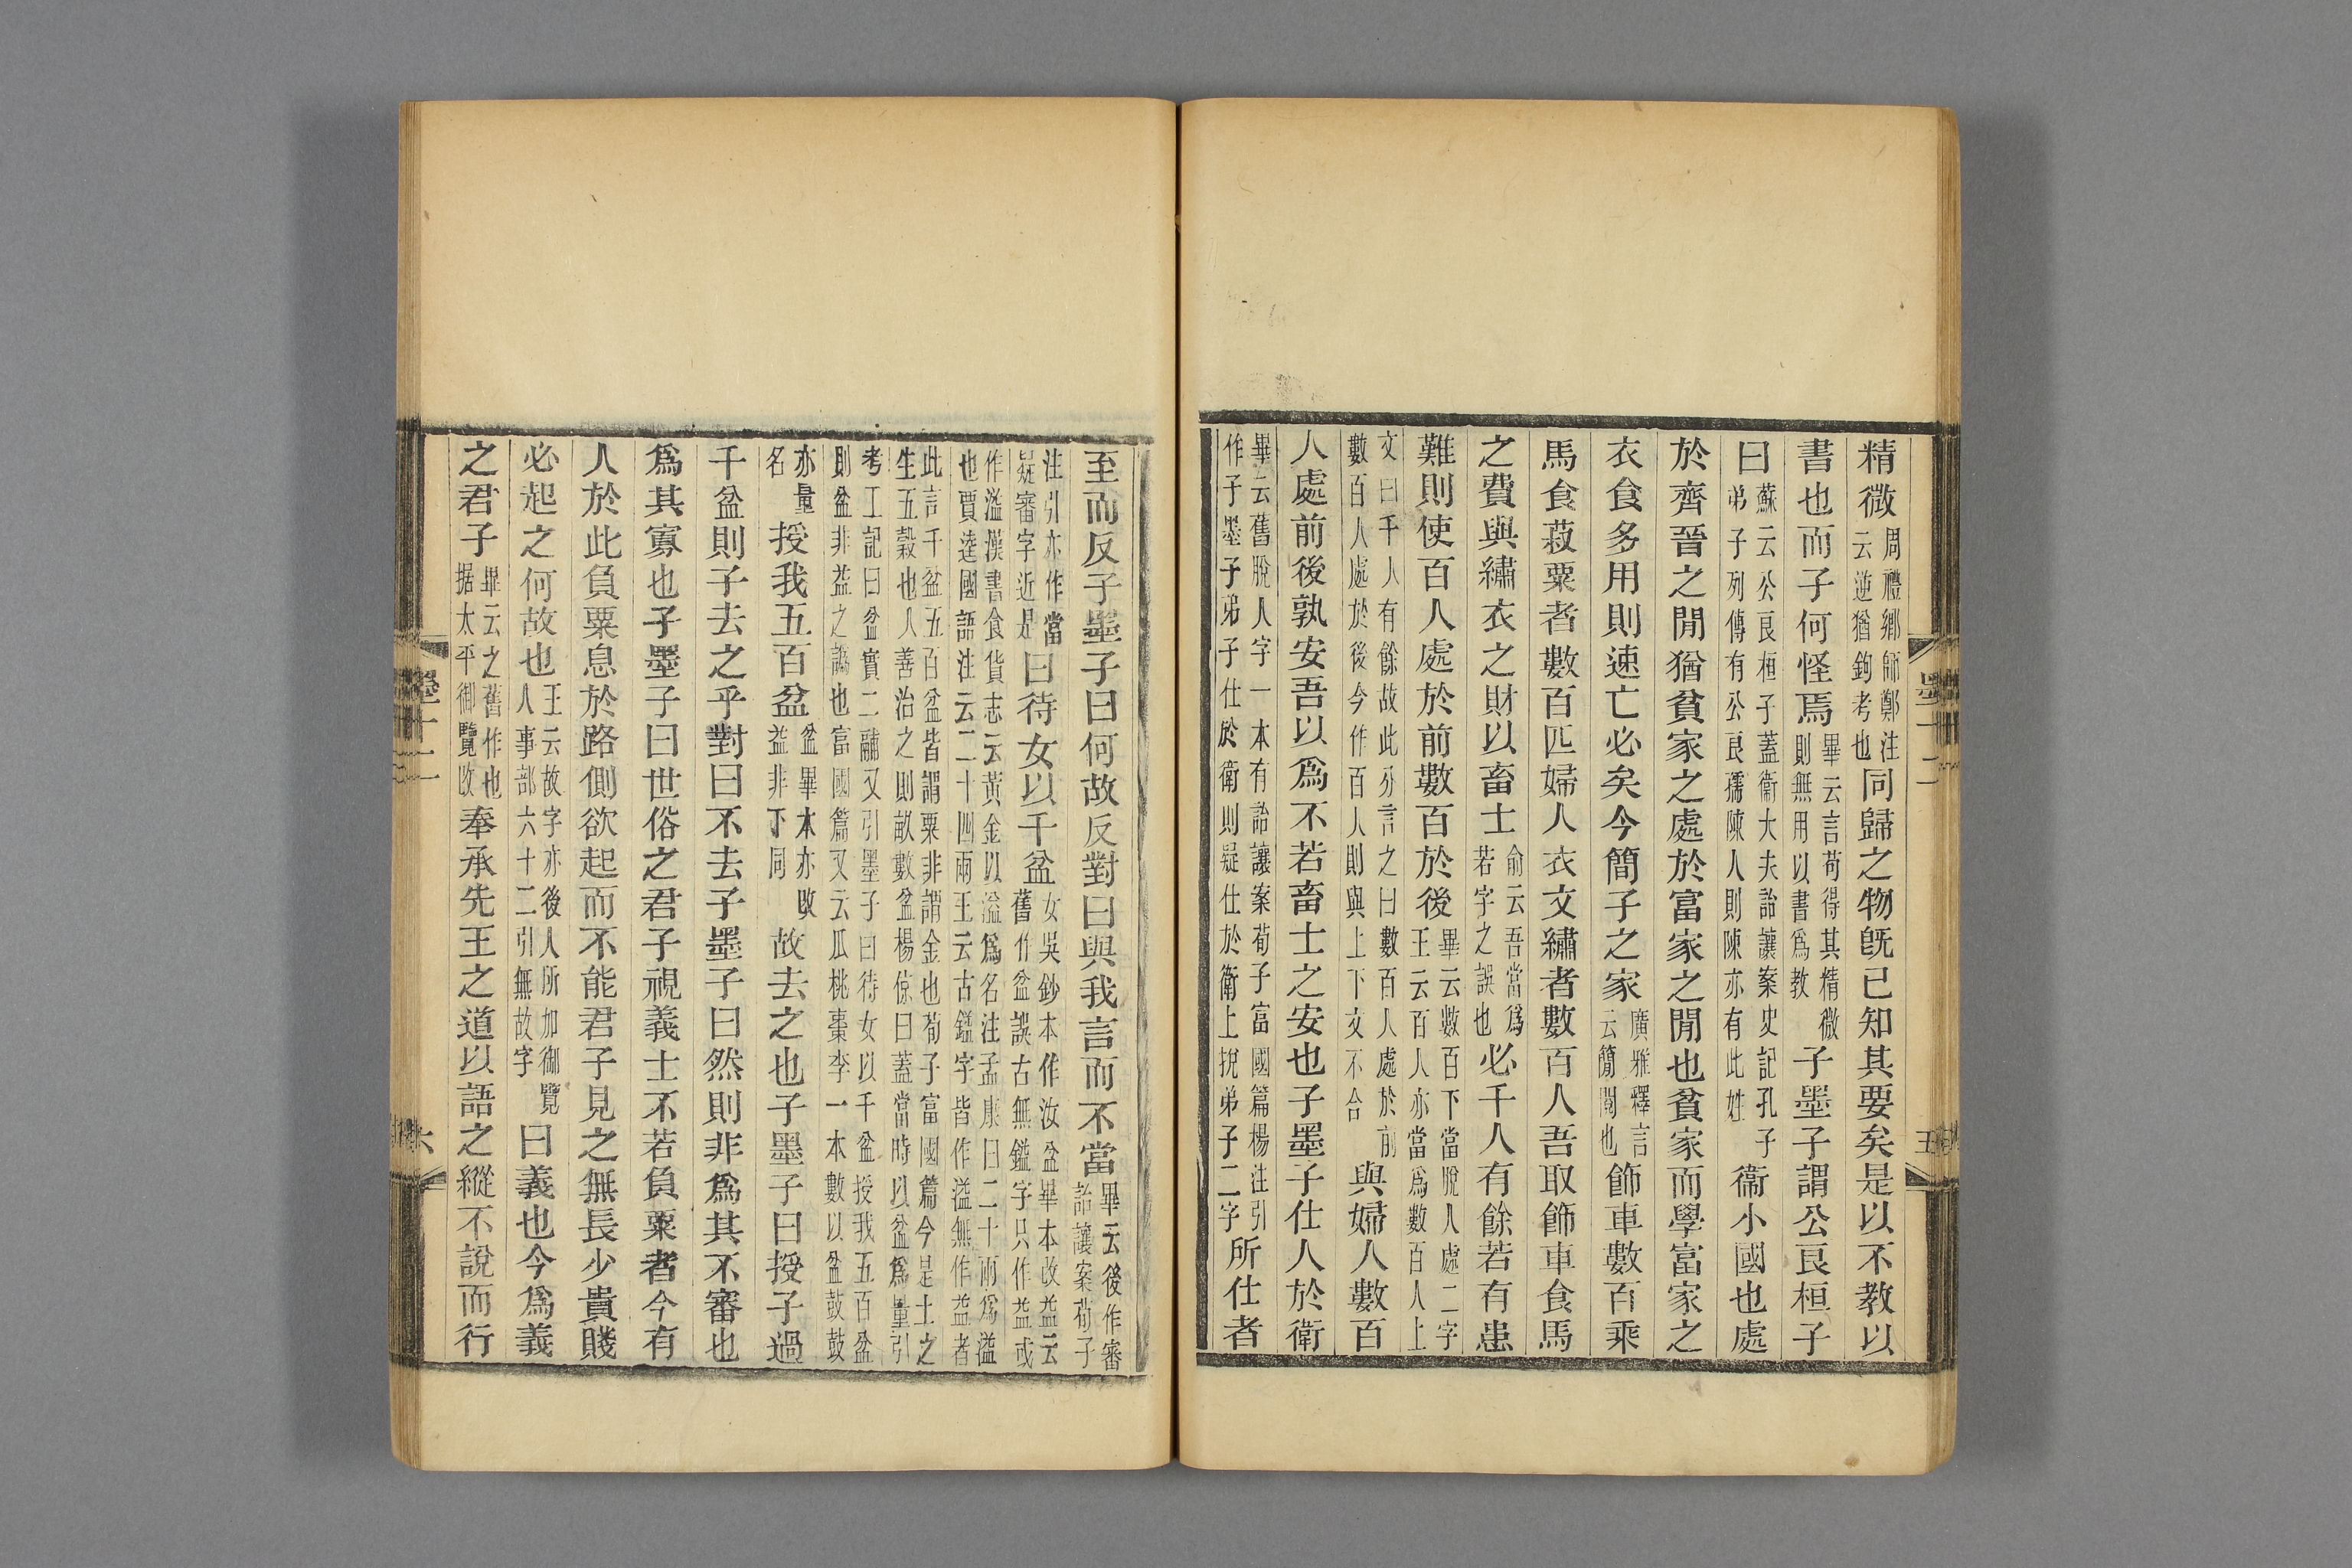 精微周禮鄉師鄭注云逆猶鉤考也同歸之物旣已知其要矣是以不教以
書也而子何怪焉畢云言苟得其精微則無用以書爲教子墨子謂公良桓子
曰蘇云公良桓子蓋衞大夫詒讓案史記孔子弟子列傳有公良孺陳人則陳亦有此姓衞小國也處
於齊晉之閒猶貧家之處於富家之閒也貧家而學富家之
衣食多用則速亡必矣今簡子之家廣雅釋言云簡閱也飾車數百乘
馬食菽粟者數百匹婦人衣文繡者數百人吾取飾車食馬
之費與繡衣之財以畜士俞云吾當爲若字之誤也必千人有餘若有患
難則使百人處於前數百於後畢云數百下當脫人處二字王云百人亦當爲數百人上
文曰千人有餘故此分言之曰數百人處於前數百人處於後今作百人則與上下文不合與婦人數百
人處前後孰安吾以爲不若畜士之安也子墨子仕人於衞
畢云舊脫人字一本有詒讓案荀子富國篇楊注引作子墨子弟子仕於衞則疑仕於衞上挩弟子二字所仕者
至而反子墨子曰何故反對曰與我言而不當畢云後作審詒讓案荀子
注引亦作當疑審字近是曰待女以千盆女吳鈔本作汝盆畢本改益云舊作盆誤古無鎰字只作益或
作溢漢書食貨志云黃金以溢爲名注孟康曰二十兩爲溢也賈逵國語注云二十四兩王云古鎰字皆作溢無作益者
此言千盆五百盆皆謂粟非謂金也荀子富國篇今是土之生五穀也人善治之則畝數盆楊倞曰蓋當時以盆爲量引
考工記曰盆實二鬴又引墨子曰待女以千盆授我五百盆則盆非益之譌也富國篇又云瓜桃棗李一本數以盆鼓鼓
亦量名授我五百盆盆畢本亦改益非下同故去之也子墨子曰授子過
千盆則子去之乎對曰不去子墨子曰然則非爲其不審也
爲其寡也子墨子曰世俗之君子視義士不若負粟者今有
人於此負粟息於路側欲起而不能君子見之無長少貴賤
必起之何故也王云故字亦後人所加御覽人事部六十二引無故字曰義也今爲義
之君子畢云之舊作也据太平御覽改奉承先王之道以語之縱不說而行
墨十二
五
墨十二
六